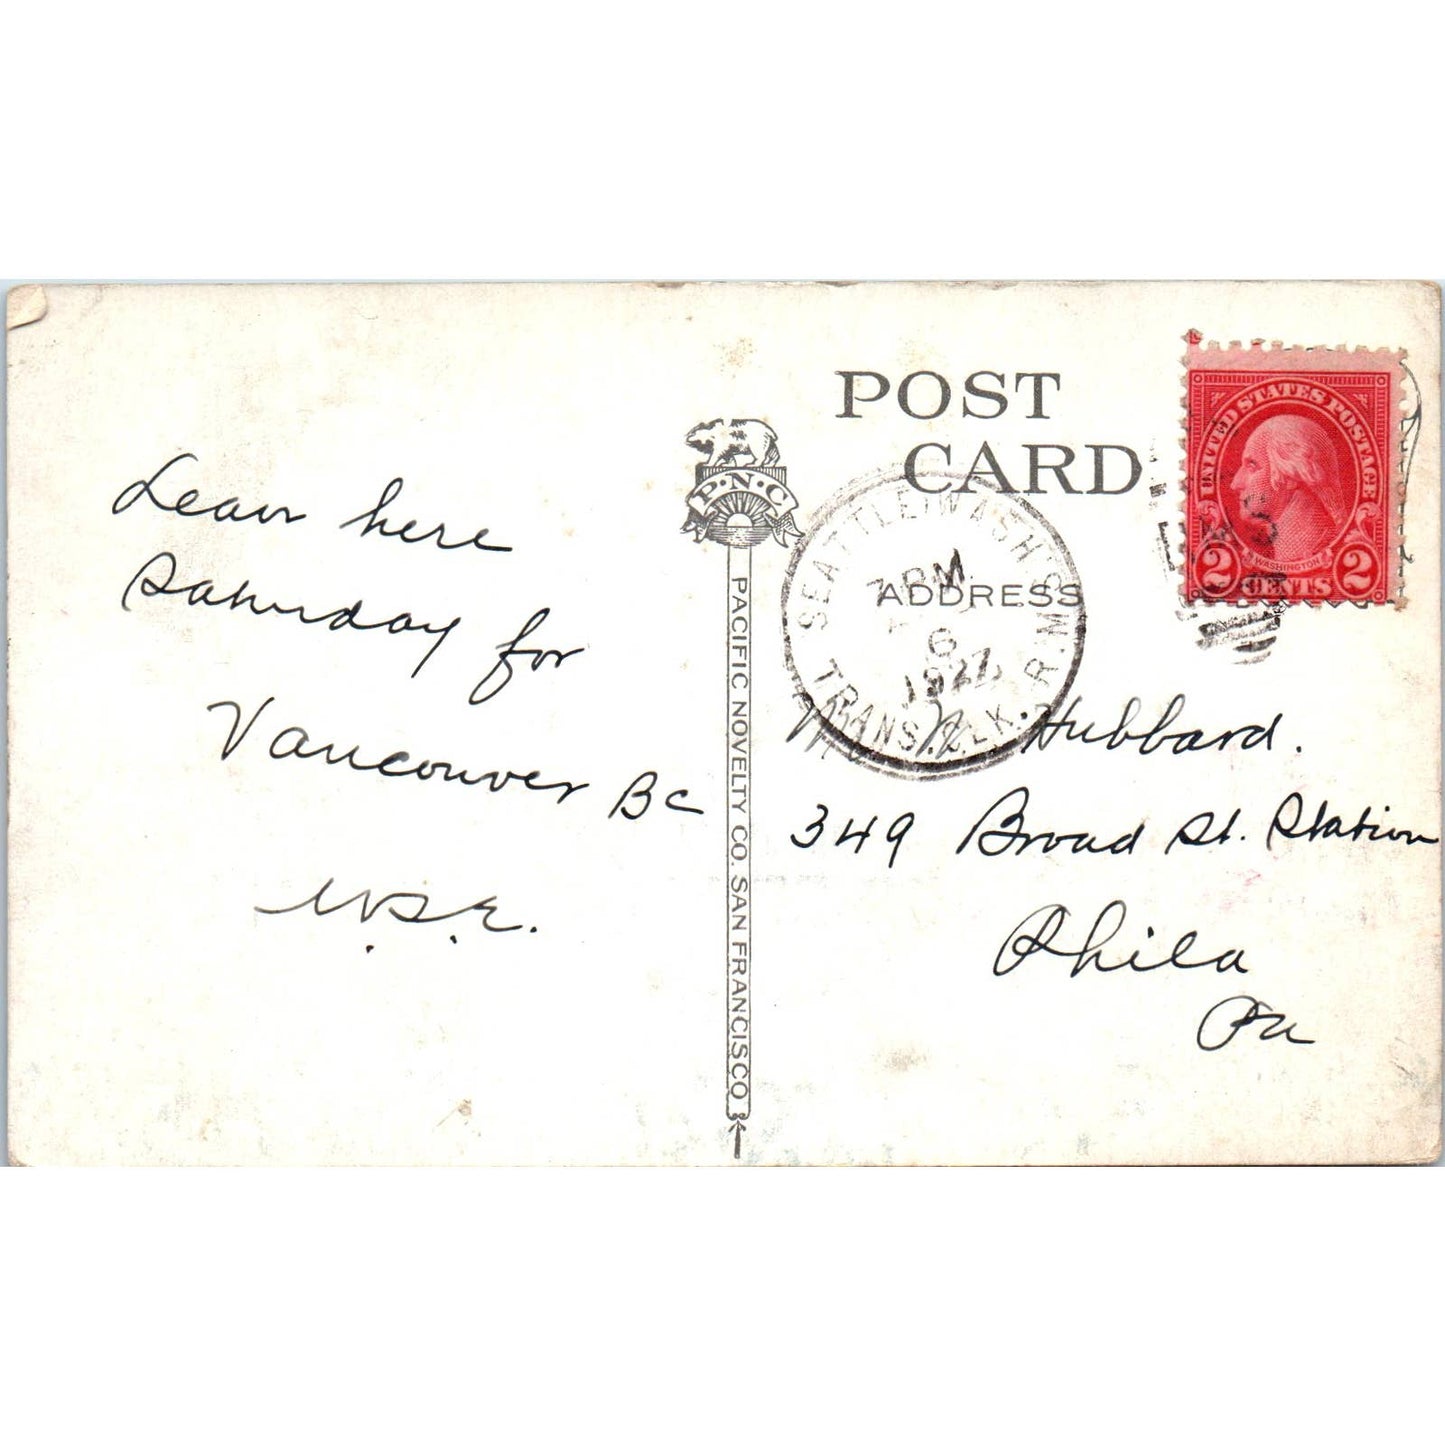 Leave here
Saturday for
Vancouver BC
W.S.E.
P·N·C
PACIFIC NOVELTY CO. SAN FRANCISCO
POST
CARD
ADDRESS
SEATTLE, WASH'S
7 PM
6
1927
TRANS. CLK. R.M.
UNITED STATES POSTAGE
WASHINGTON
2 CENTS 2
Hubbard.
349 Broad St. Station
Phila
Pa